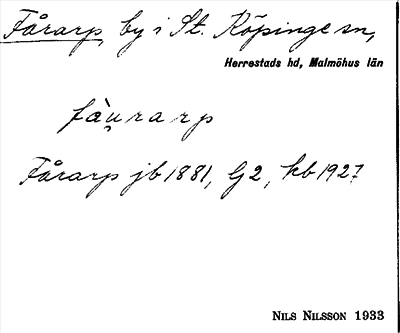 Fårarp, by i St. Köpinge sn,
Herrestads hd, Malmöhus län
fàu̯rarp
Fårarp jb 1881, G2, kb 1927
NILS NILSSON 1933